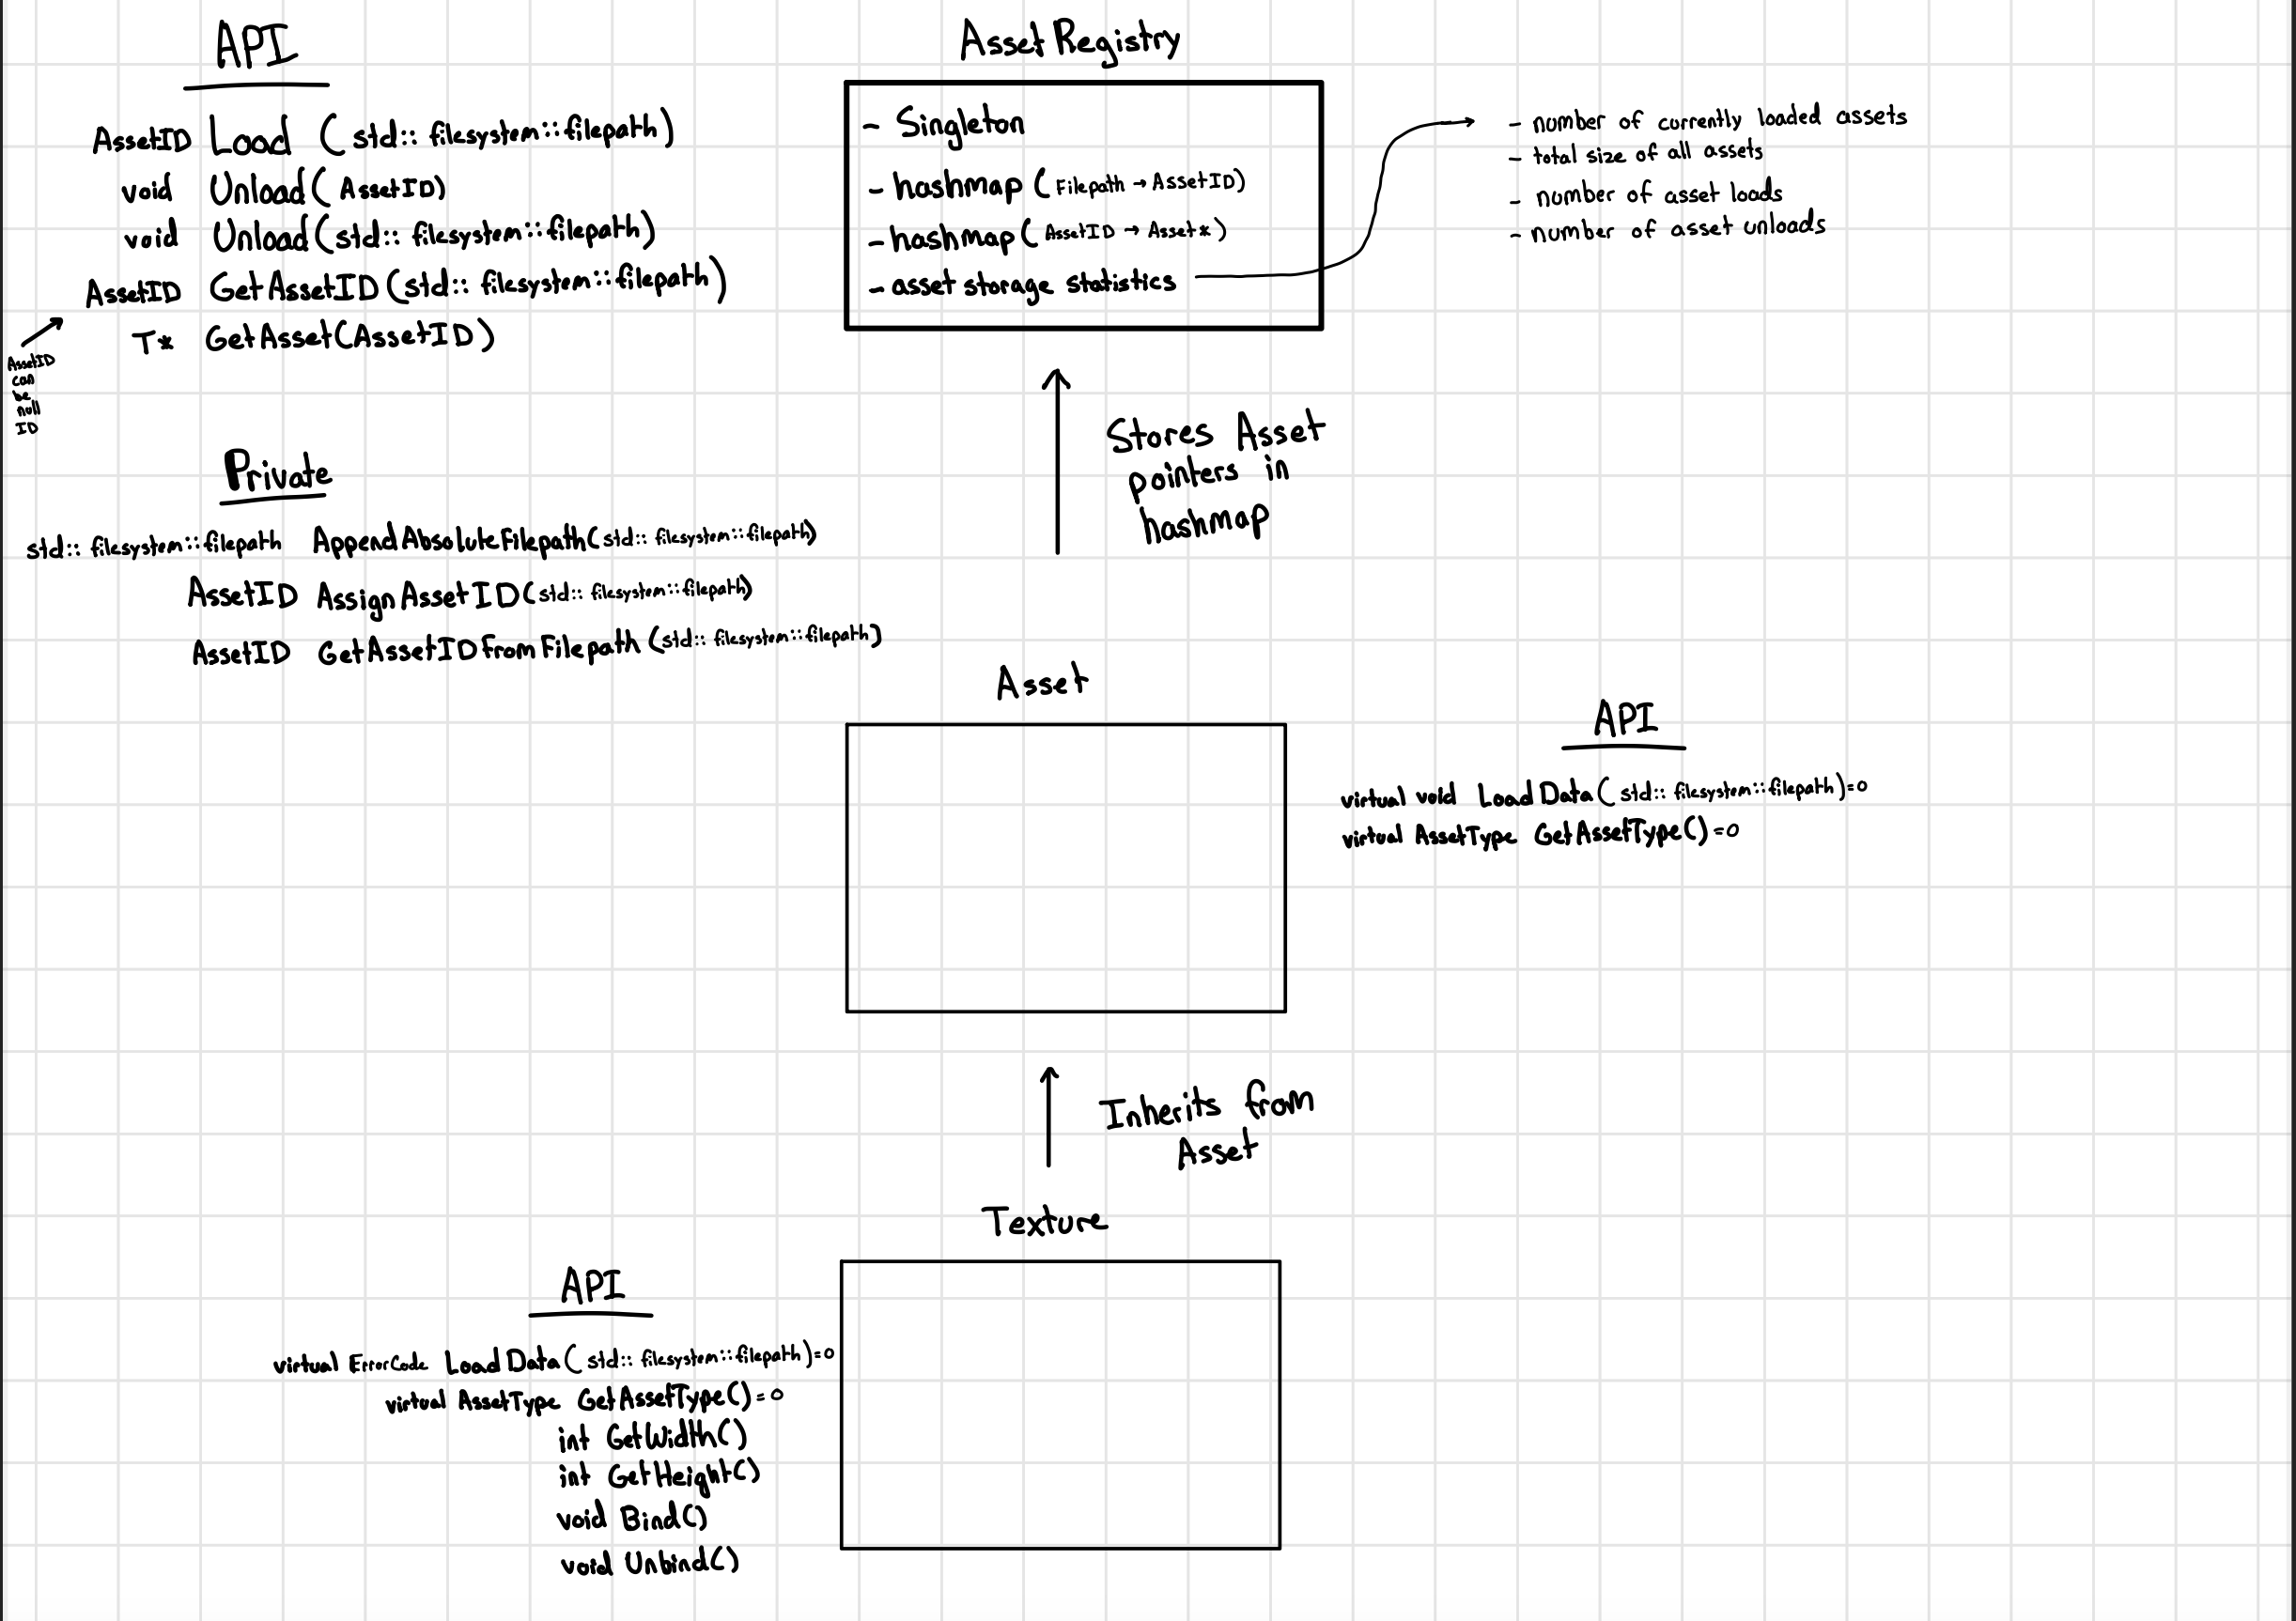 API
AssetID Load (std::filesystem::filepath)
void Unload(AssetID)
void Unload(std::filesystem::filepath)
AssetID GetAssetID(std::filesystem::filepath)
T* GetAsset(AssetID)
AssetID
can
be
null
ID
Private
std::filesystem::filepath AppendAbsoluteFilepath(std::filesystem::filepath)
AssetID AssignAssetID(std::filesystem::filepath)
AssetID GetAssetIDfromFilepath(std::filesystem::filepath)
Asset Registry
- Singleton
- hashmap (Filepath → AssetID)
- hashmap (AssetID → Asset*)
- asset storage statistics
- number of currently loaded assets
- total size of all assets
- number of asset loads
- number of asset unloads
Stores Asset
pointers in
hashmap
Asset
API
virtual void LoadData(std::filesystem::filepath)=0
virtual AssetType GetAssetType()=0
Inherits from
Asset
Texture
API
virtual ErrorCode LoadData(std::filesystem::filepath)=0
virtual AssetType GetAssetType()=0
int GetWidth()
int GetHeight()
void Bind()
void Unbind()